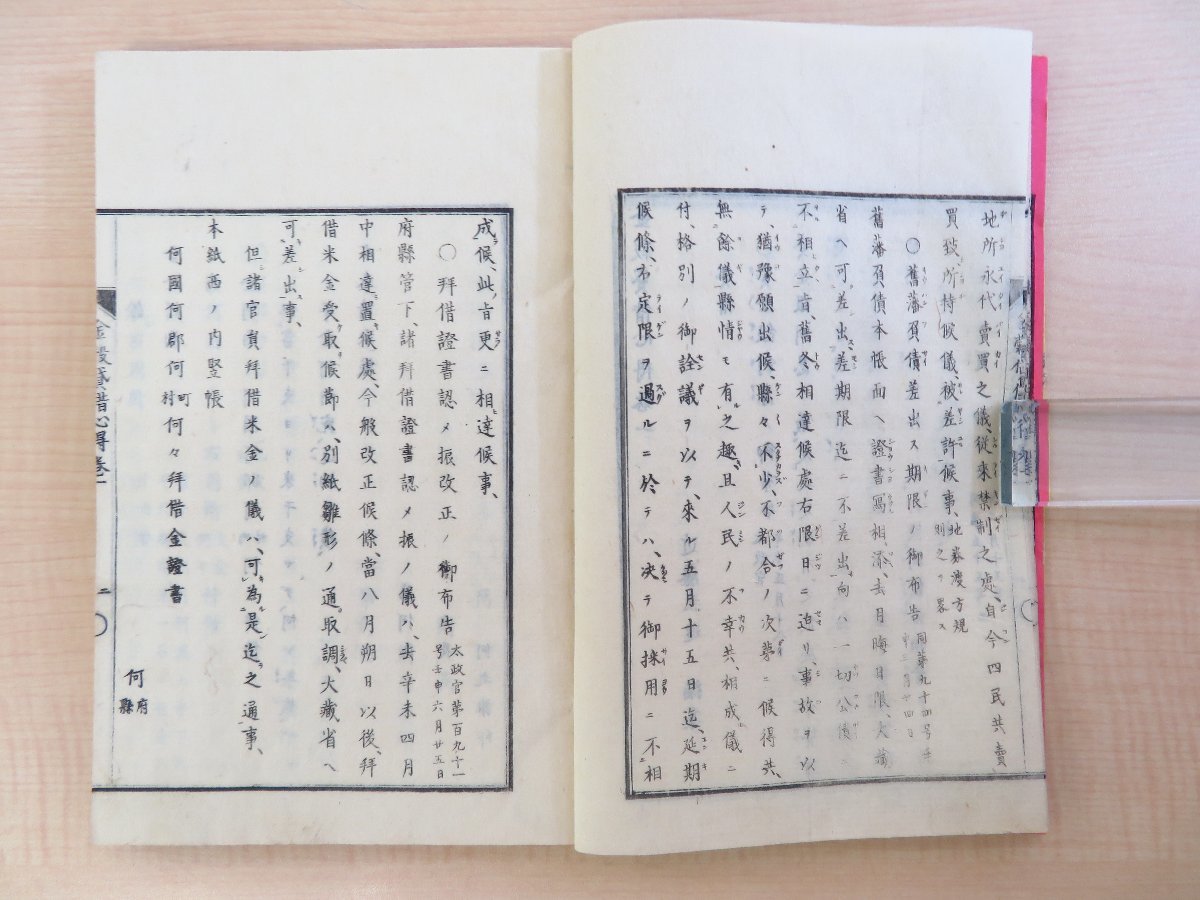 地所永代賣買之儀、従来禁制之處、自今四民共賣
買致、所持候儀、被差許候事、地券渡方規則之ヲ畧ス
○舊藩負債差出ス期限ノ御布告 同第九十四号壬申三月廿四日
舊藩負債本帳面ヘ證書寫相添、去月晦日限、大藏
省ヘ可差出、差期限迄ニ不差出向ハ一切公債ニ
不相立旨、舊冬相達候處右限日ニ迫リ、事故ヲ以
テ、猶豫願出候、縣々不少、不都合ノ次第ニ候得共、
無餘儀縣情モ有之趣、且人民ノ不幸共、相成儀ニ
付、格別ノ御詮議ヲ以テ、來ル五月十五日迄、延期
候條、右定限ヲ過ルニ於テハ、决テ御採用ニ不相
成候、此旨更ニ相達候事、
○拜借證書認メ振改正ノ御布告 太政官第百九十一号壬申六月廿五日
府縣管下、諸拜借證書認メ振ノ儀ハ、去辛未四月
中相達置候處、今般改正候條、當八月朔日以後、拜
借米金受取候節ハ、別紙雛形ノ通取調、大藏省ヘ
可差出事、
但諸官員拜借米金ノ儀ハ、可為是迄之通事、
本紙西ノ内竪帳
何國何郡何町村何々拜借金證書
何府縣
金穀貸借心得卷一
二